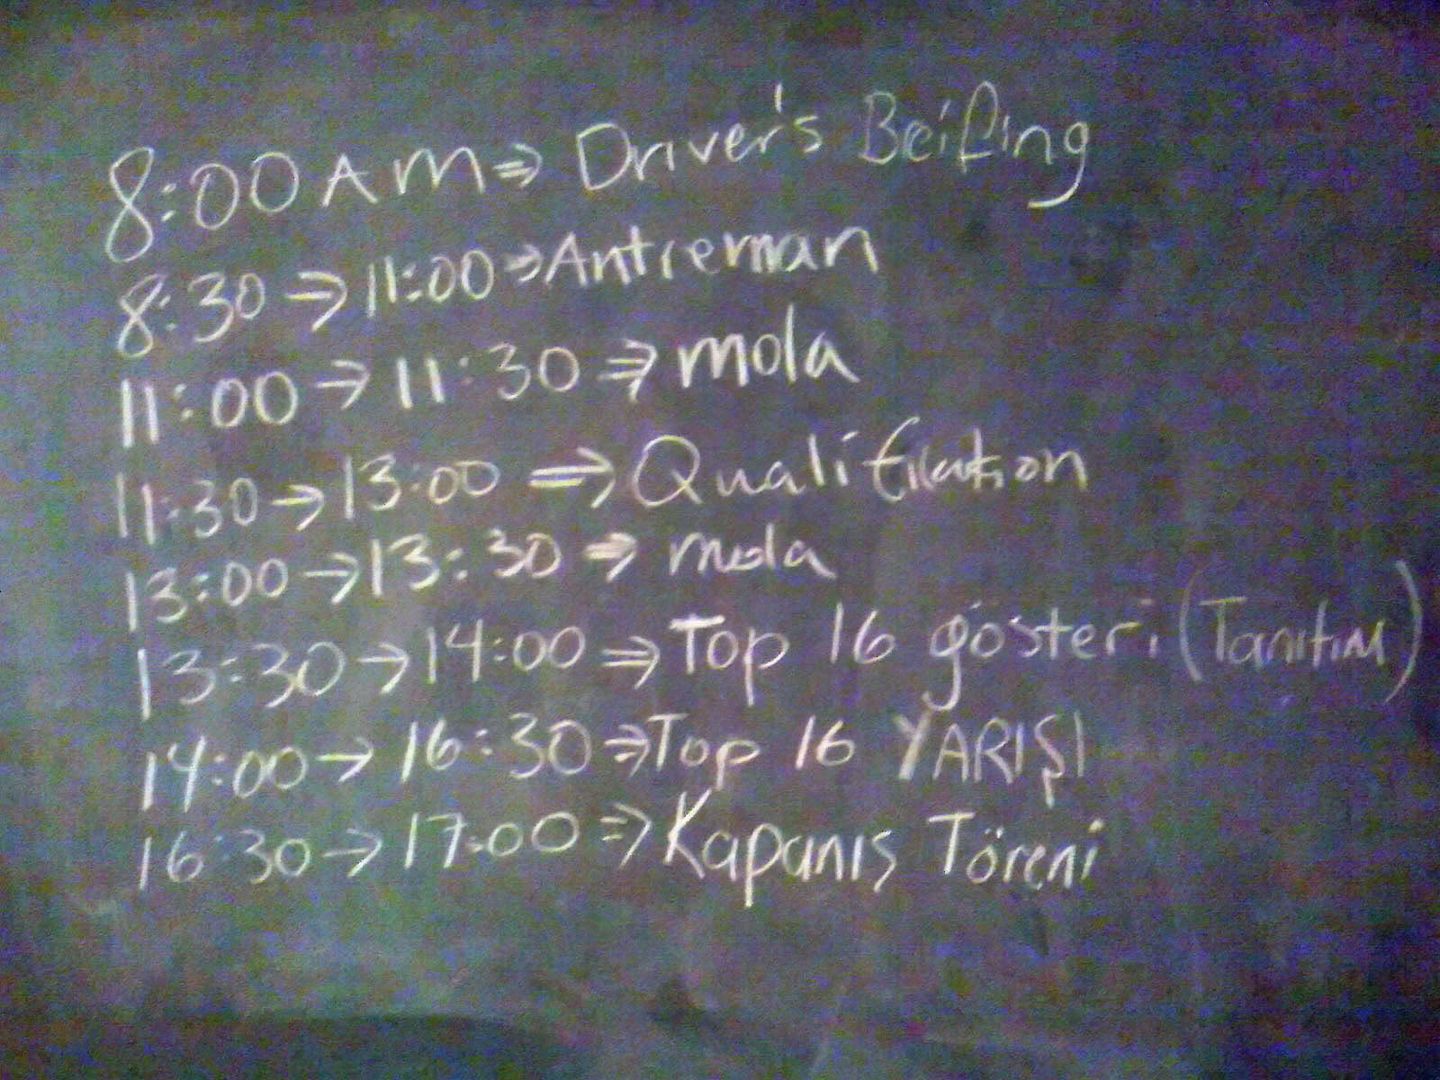 8:00 AM ⇒ Driver's Beifing
8:30 → 11:00 ⇒ Antreman
11:00 → 11:30 ⇒ mola
11:30 → 13:00 ⇒ Qualification
13:00 → 13:30 ⇒ mola
13:30 → 14:00 ⇒ Top 16 gösteri (Tanıtım)
14:00 → 16:30 ⇒ Top 16 YARIŞI
16:30 → 17:00 ⇒ Kapanış Töreni